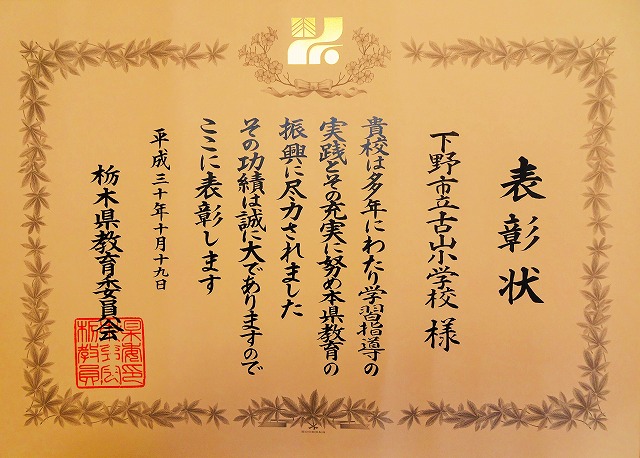 表彰状
下野市立古山小学校 様
貴校は多年にわたり学習指導の
実践とその充実に努め本県教育の
振興に尽力されました
その功績は誠に大でありますので
ここに表彰します
平成三十年十月十九日
栃木県教育委員会